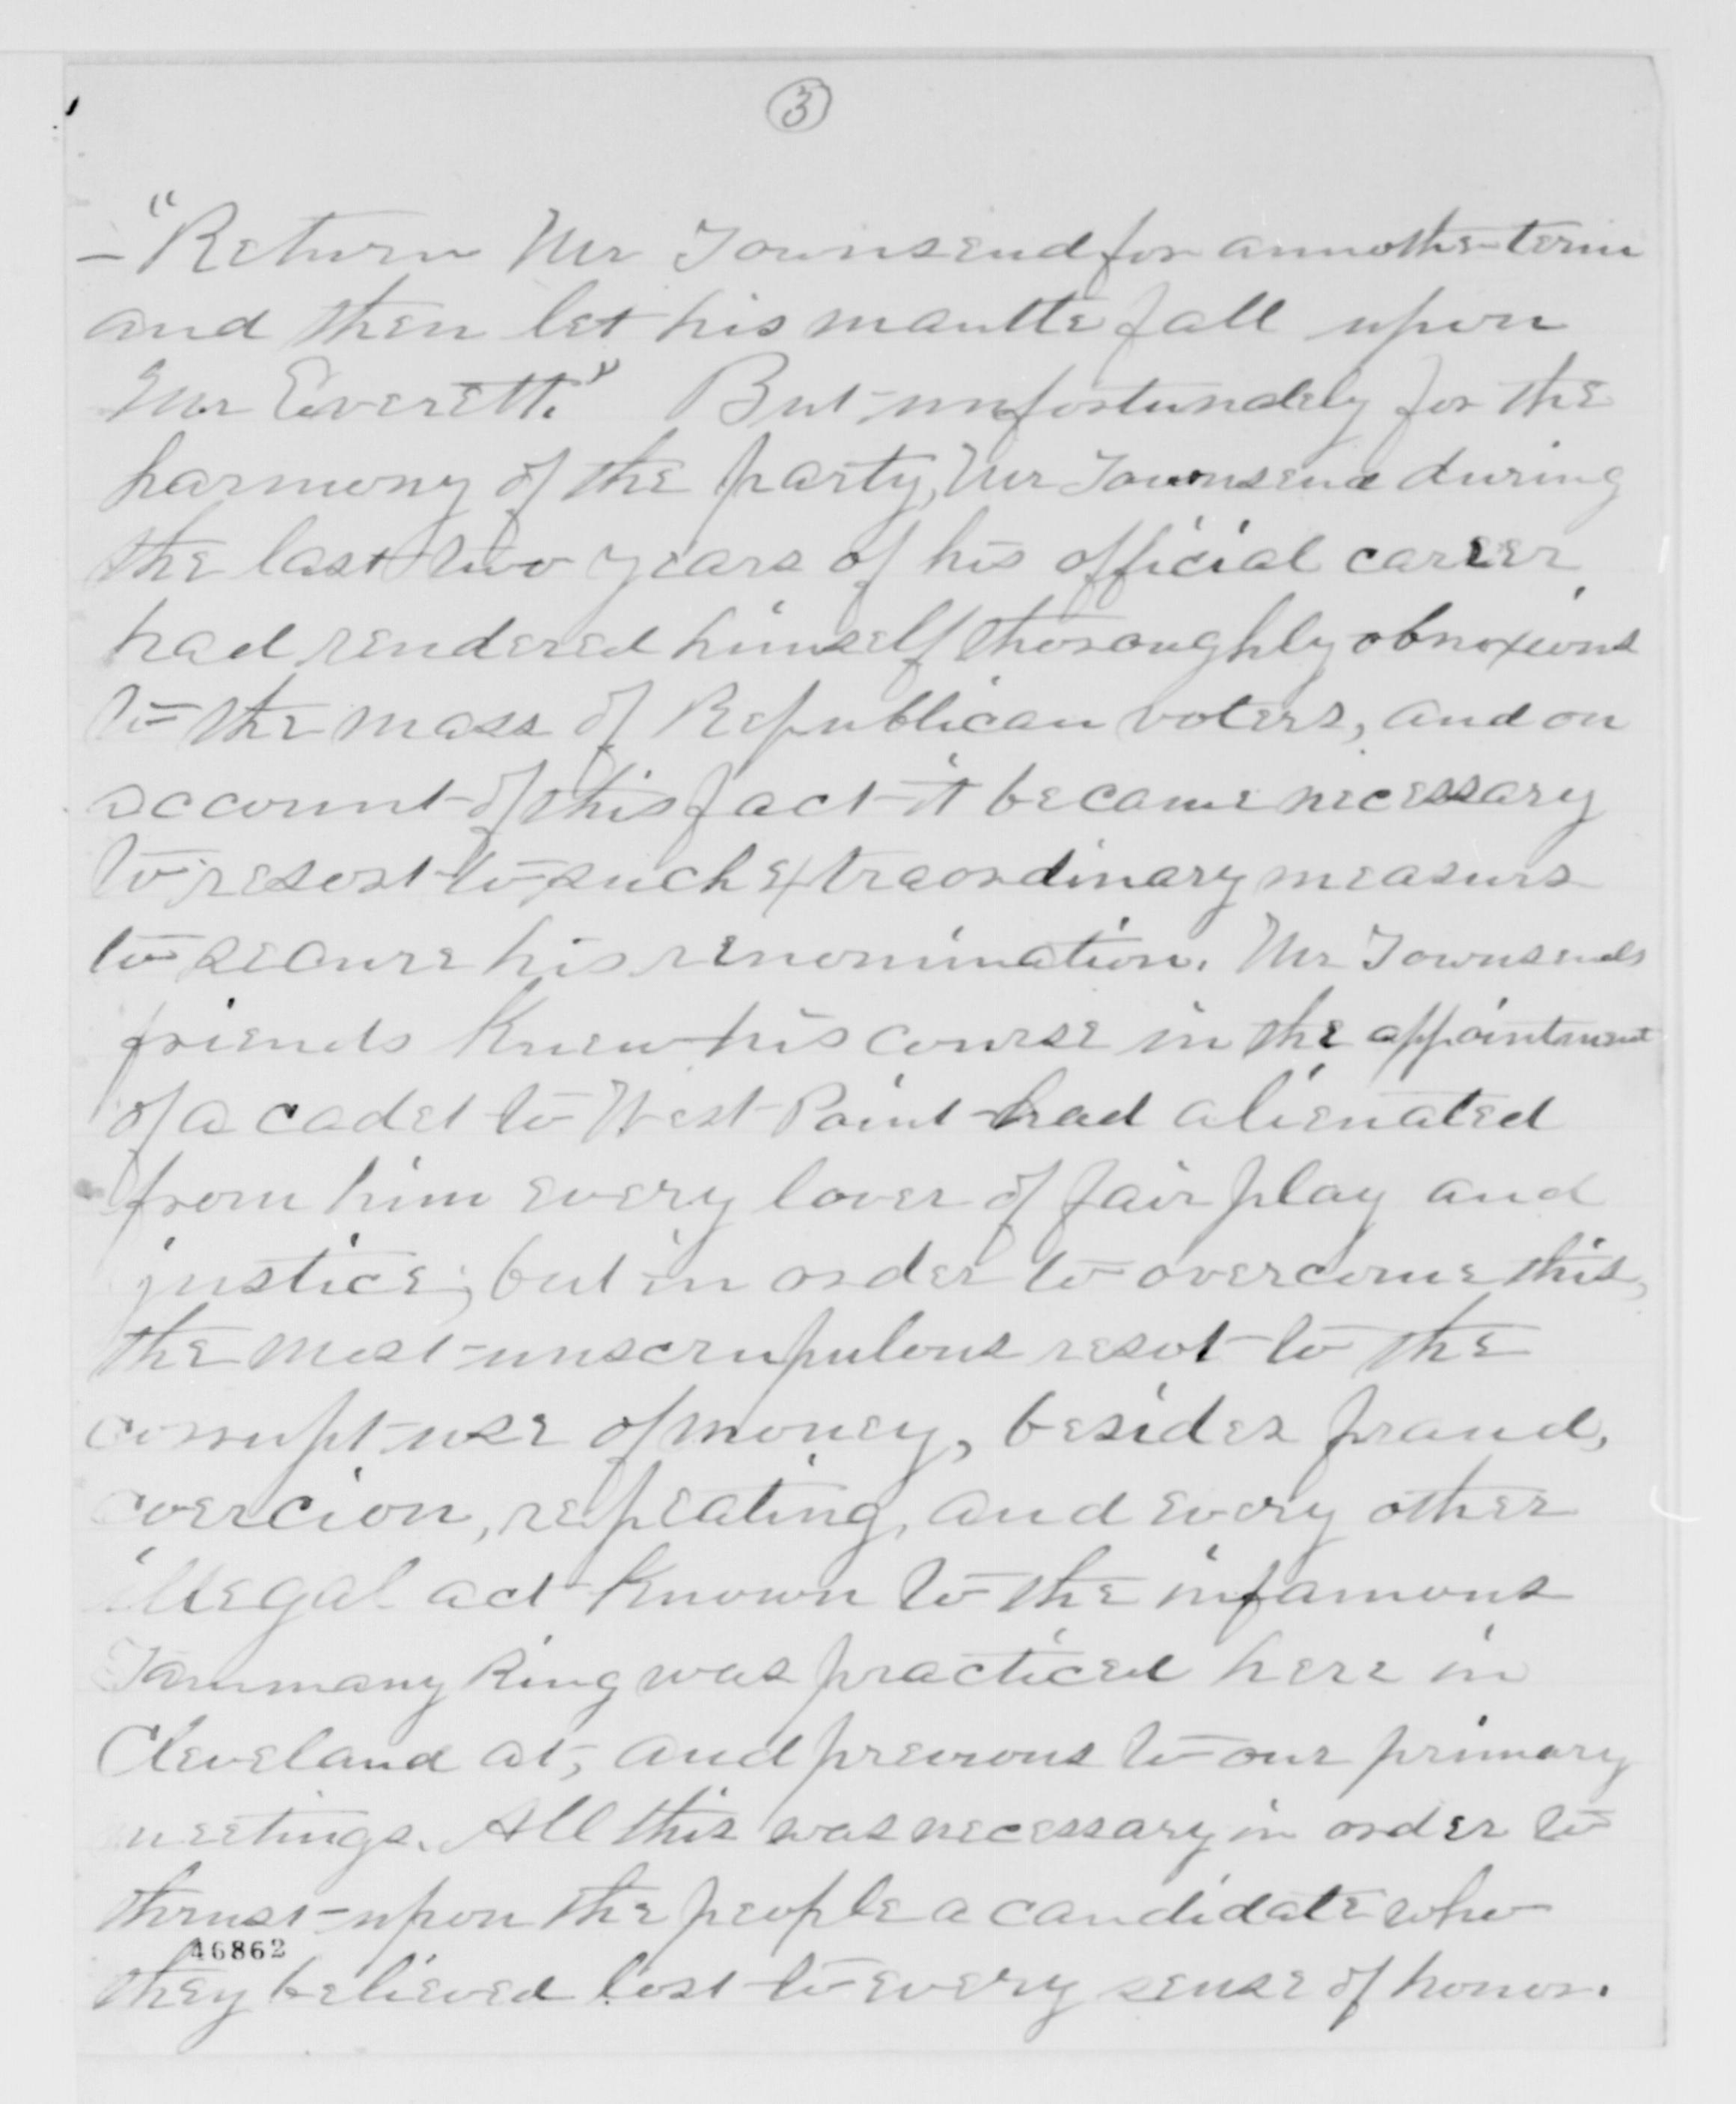 3
– "Return Mr Townsend for annother term
and then let his mantle fall upon
Mr Everett." But unfortunately for the
harmony of the party, Mr Townsend during
the last two years of his official career
had rendered himself thoroughly obnoxious
to the mass of Republican voters, and on
account of this fact it became necessary
to resort to such extraordinary measurs
to secure his renomination. Mr Townsends
friends knew his course in the appointment
of a cadet to West Point had alienated
from him every lover of fair play and
justice; but in order to overcome this,
the most unscrupulous resot to the
corrupt use of money, besides fraud,
coercion, repeating, and every other
illegal act known to the infamous
Tammany Ring was practiced here in
Cleveland at, and previous to our primary
meetings. All this was necessary in order to
thrust upon the people a candidate who
46862
they believed lost to every sense of honor.